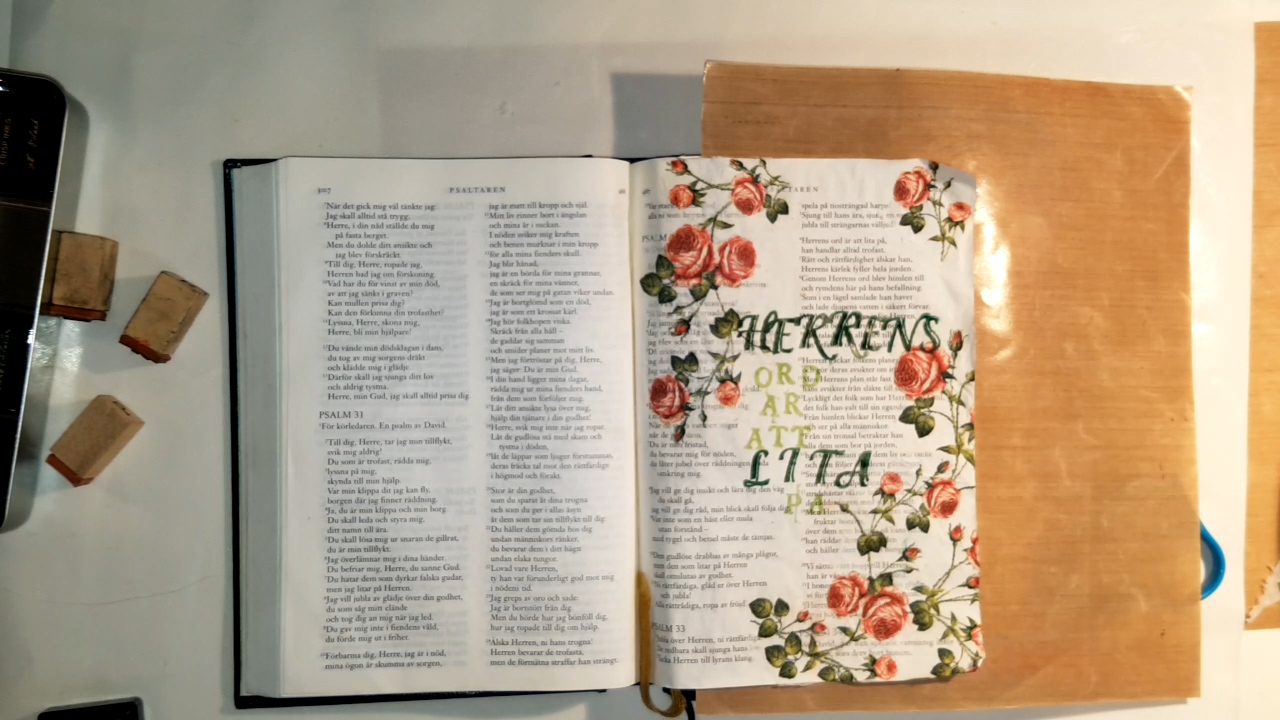 PSALTAREN
När det gick mig väl tänkte jag:
Jag skall alltid stå trygg.
Herre, i din nåd ställde du mig
på fasta berget.
Men du dolde ditt ansikte och
jag blev förskräckt.
Till dig, Herre, ropade jag,
Herren bad jag om förskoning.
Vad har du för vinst av min död,
av att jag sänks i graven?
Kan mullen prisa dig?
Kan den förkunna din trofasthet?
Lyssna, Herre, skona mig,
Herre, bli min hjälpare!
Du vände min dödsklagan i dans,
du tog av mig sorgens dräkt
och klädde mig i glädje.
Därför skall jag sjunga ditt lov
och aldrig tystna.
Herre, min Gud, jag skall alltid prisa dig.
PSALM 31
För körledaren. En psalm av David.
Till dig, Herre, tar jag min tillflykt,
svik mig aldrig!
Du som är trofast, rädda mig,
lyssna på mig,
skynda till min hjälp.
Var min klippa dit jag kan fly,
borgen där jag finner räddning.
Ja, du är min klippa och min borg.
Du skall leda och styra mig,
ditt namn till ära.
Du skall lösa mig ur snaran de gillrat,
du är min tillflykt.
Jag överlämnar mig i dina händer.
Du befriar mig, Herre, du sanne Gud.
Du hatar dem som dyrkar falska gudar,
men jag litar på Herren.
Jag vill jubla av glädje över din godhet,
du som såg mitt elände
och tog dig an mig när jag led.
Du gav mig inte i fiendens våld,
du förde mig ut i frihet.
Förbarma dig, Herre, jag är i nöd,
mina ögon är skumma av sorgen,
jag är matt till kropp och själ.
Mitt liv rinner bort i ängslan
och mina år i suckan.
I nöden sviker mig kraften
och benen murknar i min kropp
för alla mina fienders skull.
Jag blir hånad,
jag är en börda för mina grannar,
en skräck för mina vänner,
de som ser mig på gatan viker undan.
Jag är bortglömd som en död,
jag är som ett krossat kärl.
Jag hör folkhopen viska.
Skräck från alla håll –
de gaddar sig samman
och smider planer mot mitt liv.
Men jag förtröstar på dig, Herre,
jag säger: Du är min Gud.
I din hand ligger mina dagar,
rädda mig ur mina fienders hand,
från dem som förföljer mig.
Låt ditt ansikte lysa över mig,
hjälp din tjänare i din godhet!
Herre, svik mig inte när jag ropar.
Låt de gudlösa stå med skam och
tystna i döden,
låt de läppar som ljuger förstummas,
deras fräcka tal mot den rättfärdige
i högmod och förakt.
Stor är din godhet,
som du sparat åt dina trogna
och som du ger i allas åsyn
åt dem som tar sin tillflykt till dig.
Du håller dem gömda hos dig
undan människors ränker,
du bevarar dem i ditt hägn
undan elaka tungor.
Lovad vare Herren,
ty han var förunderligt god mot mig
i nödens tid.
Jag greps av oro och sade:
Jag är bortstött från dig.
Men du hörde hur jag bönföll dig,
hur jag ropade till dig om hjälp.
Älska Herren, ni hans trogna!
Herren bevarar de trofasta,
men de förmätna straffar han strängt.
HERRENS
ORD
ÄR
ATT
LITA
PÅ
Jag vill ge dig insikt och lära dig den väg
du skall gå,
jag vill ge dig råd, min blick skall följa dig.
Var inte som en häst eller mula
utan förstånd –
med tygel och betsel måste de tämjas.
Den gudlöse drabbas av många plågor,
men den som litar på Herren
skall omslutas av godhet.
Ni rättfärdiga, gläd er över Herren
och jubla!
PSALM 33
Jubla över Herren, ni rättfärdiga
spela på tiosträngad harpa
Sjung till hans ära,
jubla till strängarnas
Herrens ord är att lita på,
han handlar alltid trofast.
Rätt och rättfärdighet älskar han,
Herrens kärlek fyller hela jorden.
Genom Herrens ord blev himlen till
och rymdens här på hans befallning.
Som i en lägel samlade han havet
och lade djupens vatten i säkert förvar.